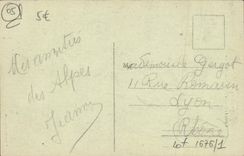 05
5€
Mes amitiés
des Alpes
Jeanne
Mademoiselle Gergot
11 Rue Romarin
Lyon
Rhône
lot 1676/1